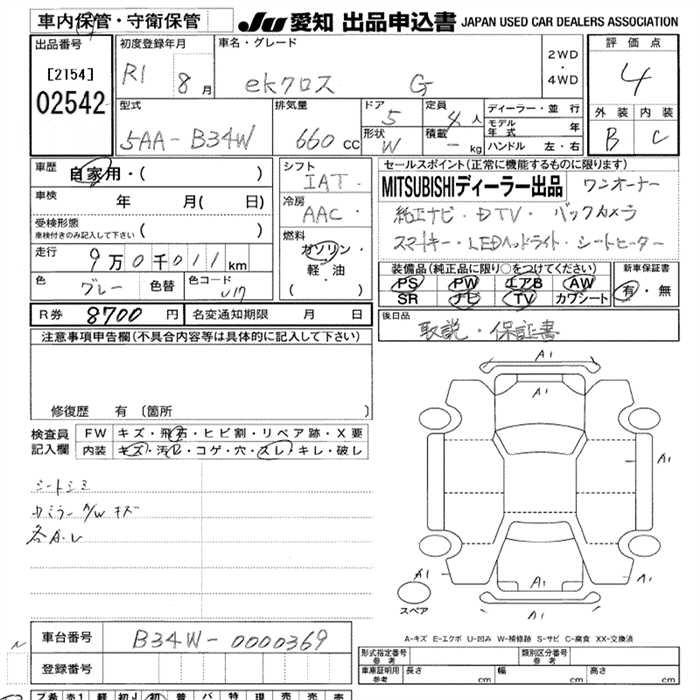 車内保管・守衛保管
JU 愛知 出品申込書 JAPAN USED CAR DEALERS ASSOCIATION
出品番号
[2154]
02542
初度登録年月
R1 8月
車名・グレード
ekクロス G
2WD
・
4WD
評価点
4
外装 内装
B C
型式
5AA-B34W
排気量
660 cc
ドア 5
形状 W
定員 4人
積載 - kg
ディーラー・並行
モデル年式 年
ハンドル 左・右
車歴
自家用・( )
車検 年 月( 日)
受検形態
車検付きのみ記入して下さい ( )
走行
9万0千011km
色 グレー 色替 色コード U17
シフト
IAT
冷房
AAC
燃料
ガソリン・
軽・油
( )
セールスポイント(正常に機能するものに限ります)
MITSUBISHIディーラー出品 ワンオーナー
純正ナビ・DTV・バックカメラ
スマートキー・LEDヘッドライト・シートヒーター
装備品(純正品に限り○をつけてください)
PS PW エアB AW
SR ナビ TV カワシート
新車保証書
有・無
R券 8700円 名変通知期限 月 日
後日品
取説・保証書
注意事項申告欄(不具合内容等は具体的に記入して下さい)
修復歴 有 〔箇所 〕
検査員記入欄
FW キズ・飛石・ヒビ割・リペア跡・X要
内装 キズ・汚レ・コゲ・穴・スレ・キレ・破レ
シートシミ
各A・L
A1
A1
A1
A1
A1
A1
スペア
A-キズ E-エクボ U-凹み W-補修跡 S-サビ C-腐食 XX-交換済
車台番号 B34W-0000369
登録番号
型式指定番号 参考
類別区分番号 参考
車庫証明用 参考 長さ cm 幅 cm 高さ cm